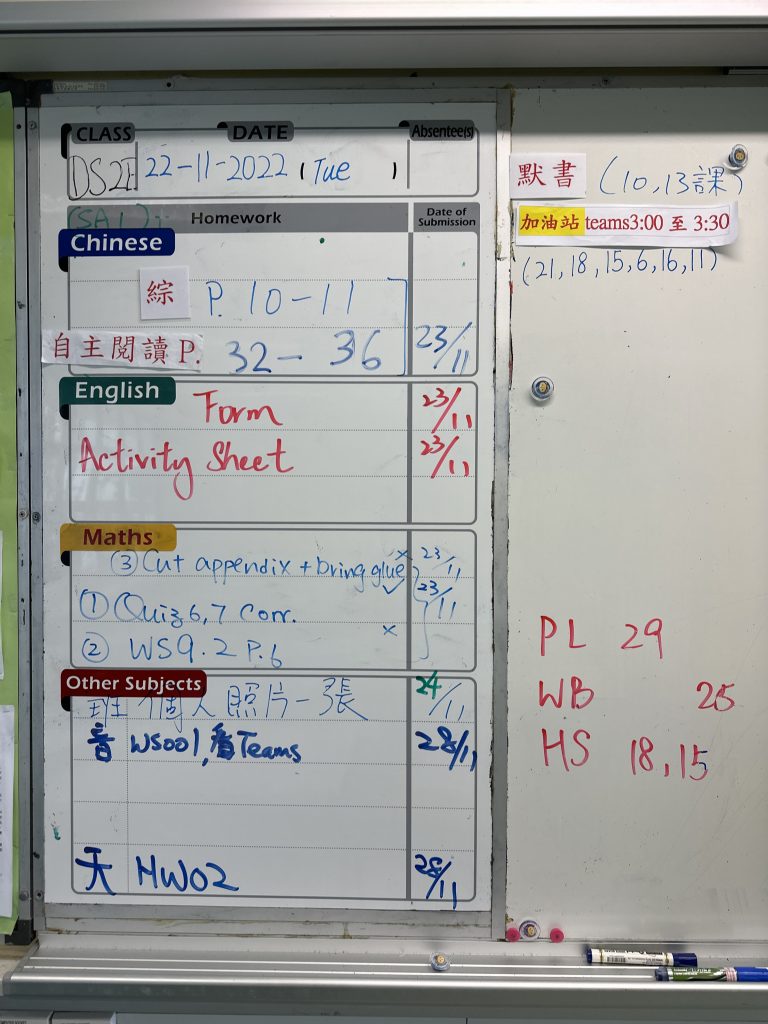 CLASS DATE Absentee(s)
22-11-2022 (Tue )
(SA1): Homework Date of Submission
Chinese
綜 P. 10-11
自主閱讀 P. 32-36 23/11
English
Form 23/11
Activity Sheet 23/11
Maths
③ Cut appendix + bring glue 23/11
① Quiz 6,7 Corr. 23/11
② WS9.2 P.6
Other Subjects
班 個人照片一張 24/11
音 WS001, 看Teams 28/11
天 HW02 28/11
默書 (10,13課)
加油站 teams3:00 至 3:30
(21,18,15,6,16,11)
PL 29
WB 25
HS 18,15